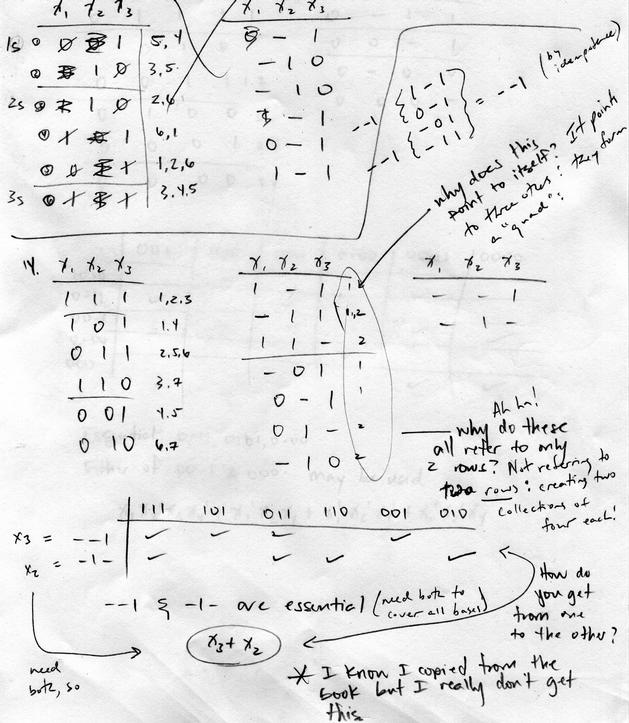 x₁ x₂ x₃
x₁ x₂ x₃
1s 1 5,4
1 0 3,5
2s 1 0 2,6
6,1
1,2,6
3s 3,4,5
- 1
- 1 0
- 1 0
- 1
0 - 1
1 - 1
--1 { 1 - 1
0 - 1 } = --1 (by idempotence)
--1 { - 0 1
- 1 1
why does this
point to itself? It points
to three others: they form
a "quad".
14. x₁ x₂ x₃
1 1 1 1,2,3
1 0 1 1,4
0 1 1 2,5,6
1 1 0 3,7
0 0 1 4,5
0 1 0 6,7
x₁ x₂ x₃
1 - 1 1
- 1 1 1,2
1 1 - 2
- 0 1 1
0 - 1 1
0 1 - 2
- 1 0 2
x₁ x₂ x₃
- - 1
- 1 -
Ah ha!
why do these
all refer to only
2 rows? Not referring to
rows: creating two
collections of
four each!
111 101 011 110 001 010
x₃ = --1 ✓ ✓ ✓ ✓
x₂ = -1- ✓ ✓ ✓ ✓
--1 & -1- are essential (need both to
cover all bases)
How do
you get
from one
to the other?
need
both, so
x₃ + x₂
* I know I copied from the
book but I really don't get
this.